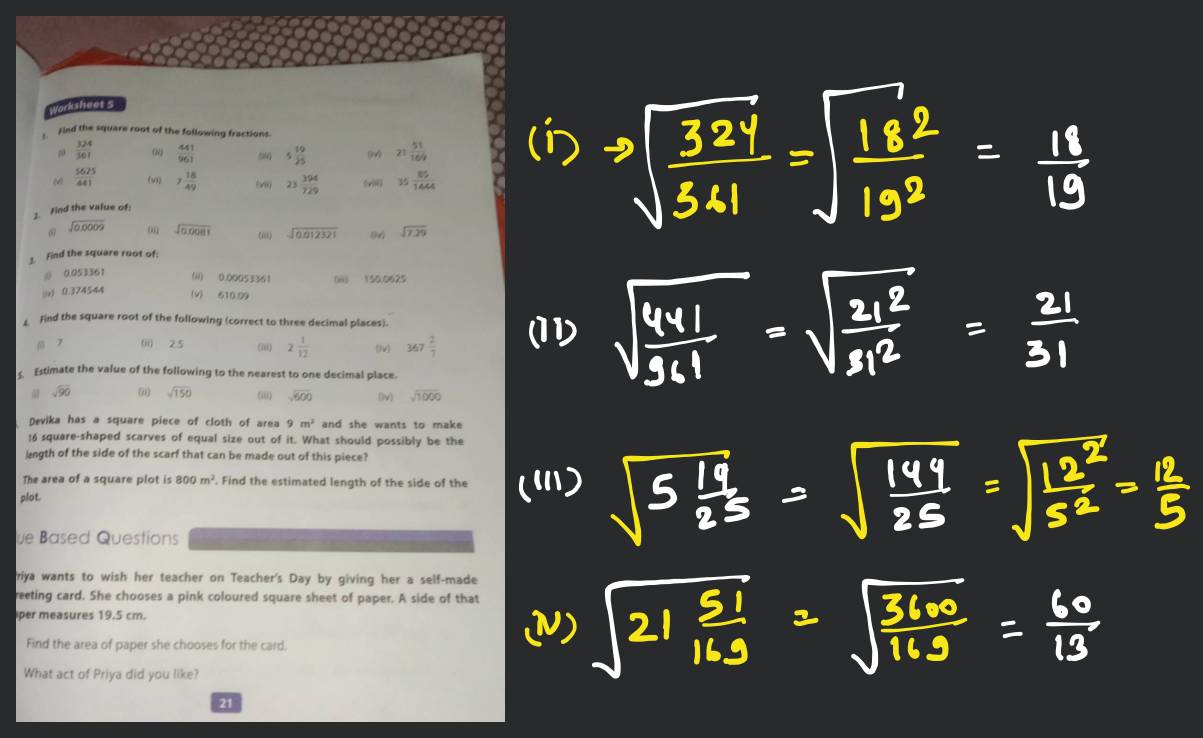 Worksheet 5
1. Find the square root of the following fractions.
(i) 324/361 (ii) 441/961 (iii) 5 19/25 (iv) 21 51/169
(v) 5625/441 (vi) 7 18/49 (vii) 23 394/729 (viii) 35 85/1444
2. Find the value of:
(i) √0.0009 (ii) √0.0081 (iii) √0.012321 (iv) √7.29
3. Find the square root of:
(i) 0.053361 (ii) 0.00053361 (iii) 150.0625
(iv) 0.374544 (v) 610.09
4. Find the square root of the following (correct to three decimal places).
(i) 7 (ii) 2.5 (iii) 2 1/12 (iv) 367 2/7
5. Estimate the value of the following to the nearest to one decimal place.
(i) √90 (ii) √150 (iii) √600 (iv) √1000
Devika has a square piece of cloth of area 9 m² and she wants to make
16 square-shaped scarves of equal size out of it. What should possibly be the
length of the side of the scarf that can be made out of this piece?
The area of a square plot is 800 m². Find the estimated length of the side of the
plot.
ue Based Questions
riya wants to wish her teacher on Teacher's Day by giving her a self-made
reeting card. She chooses a pink coloured square sheet of paper. A side of that
aper measures 19.5 cm.
Find the area of paper she chooses for the card.
What act of Priya did you like?
21
(i) → √(324/361) = √(18²/19²) = 18/19
(II) √(441/961) = √(21²/31²) = 21/31
(III) √(5 19/25) = √(144/25) = √(12²/5²) = 12/5
(IV) √(21 51/169) = √(3600/169) = 60/13